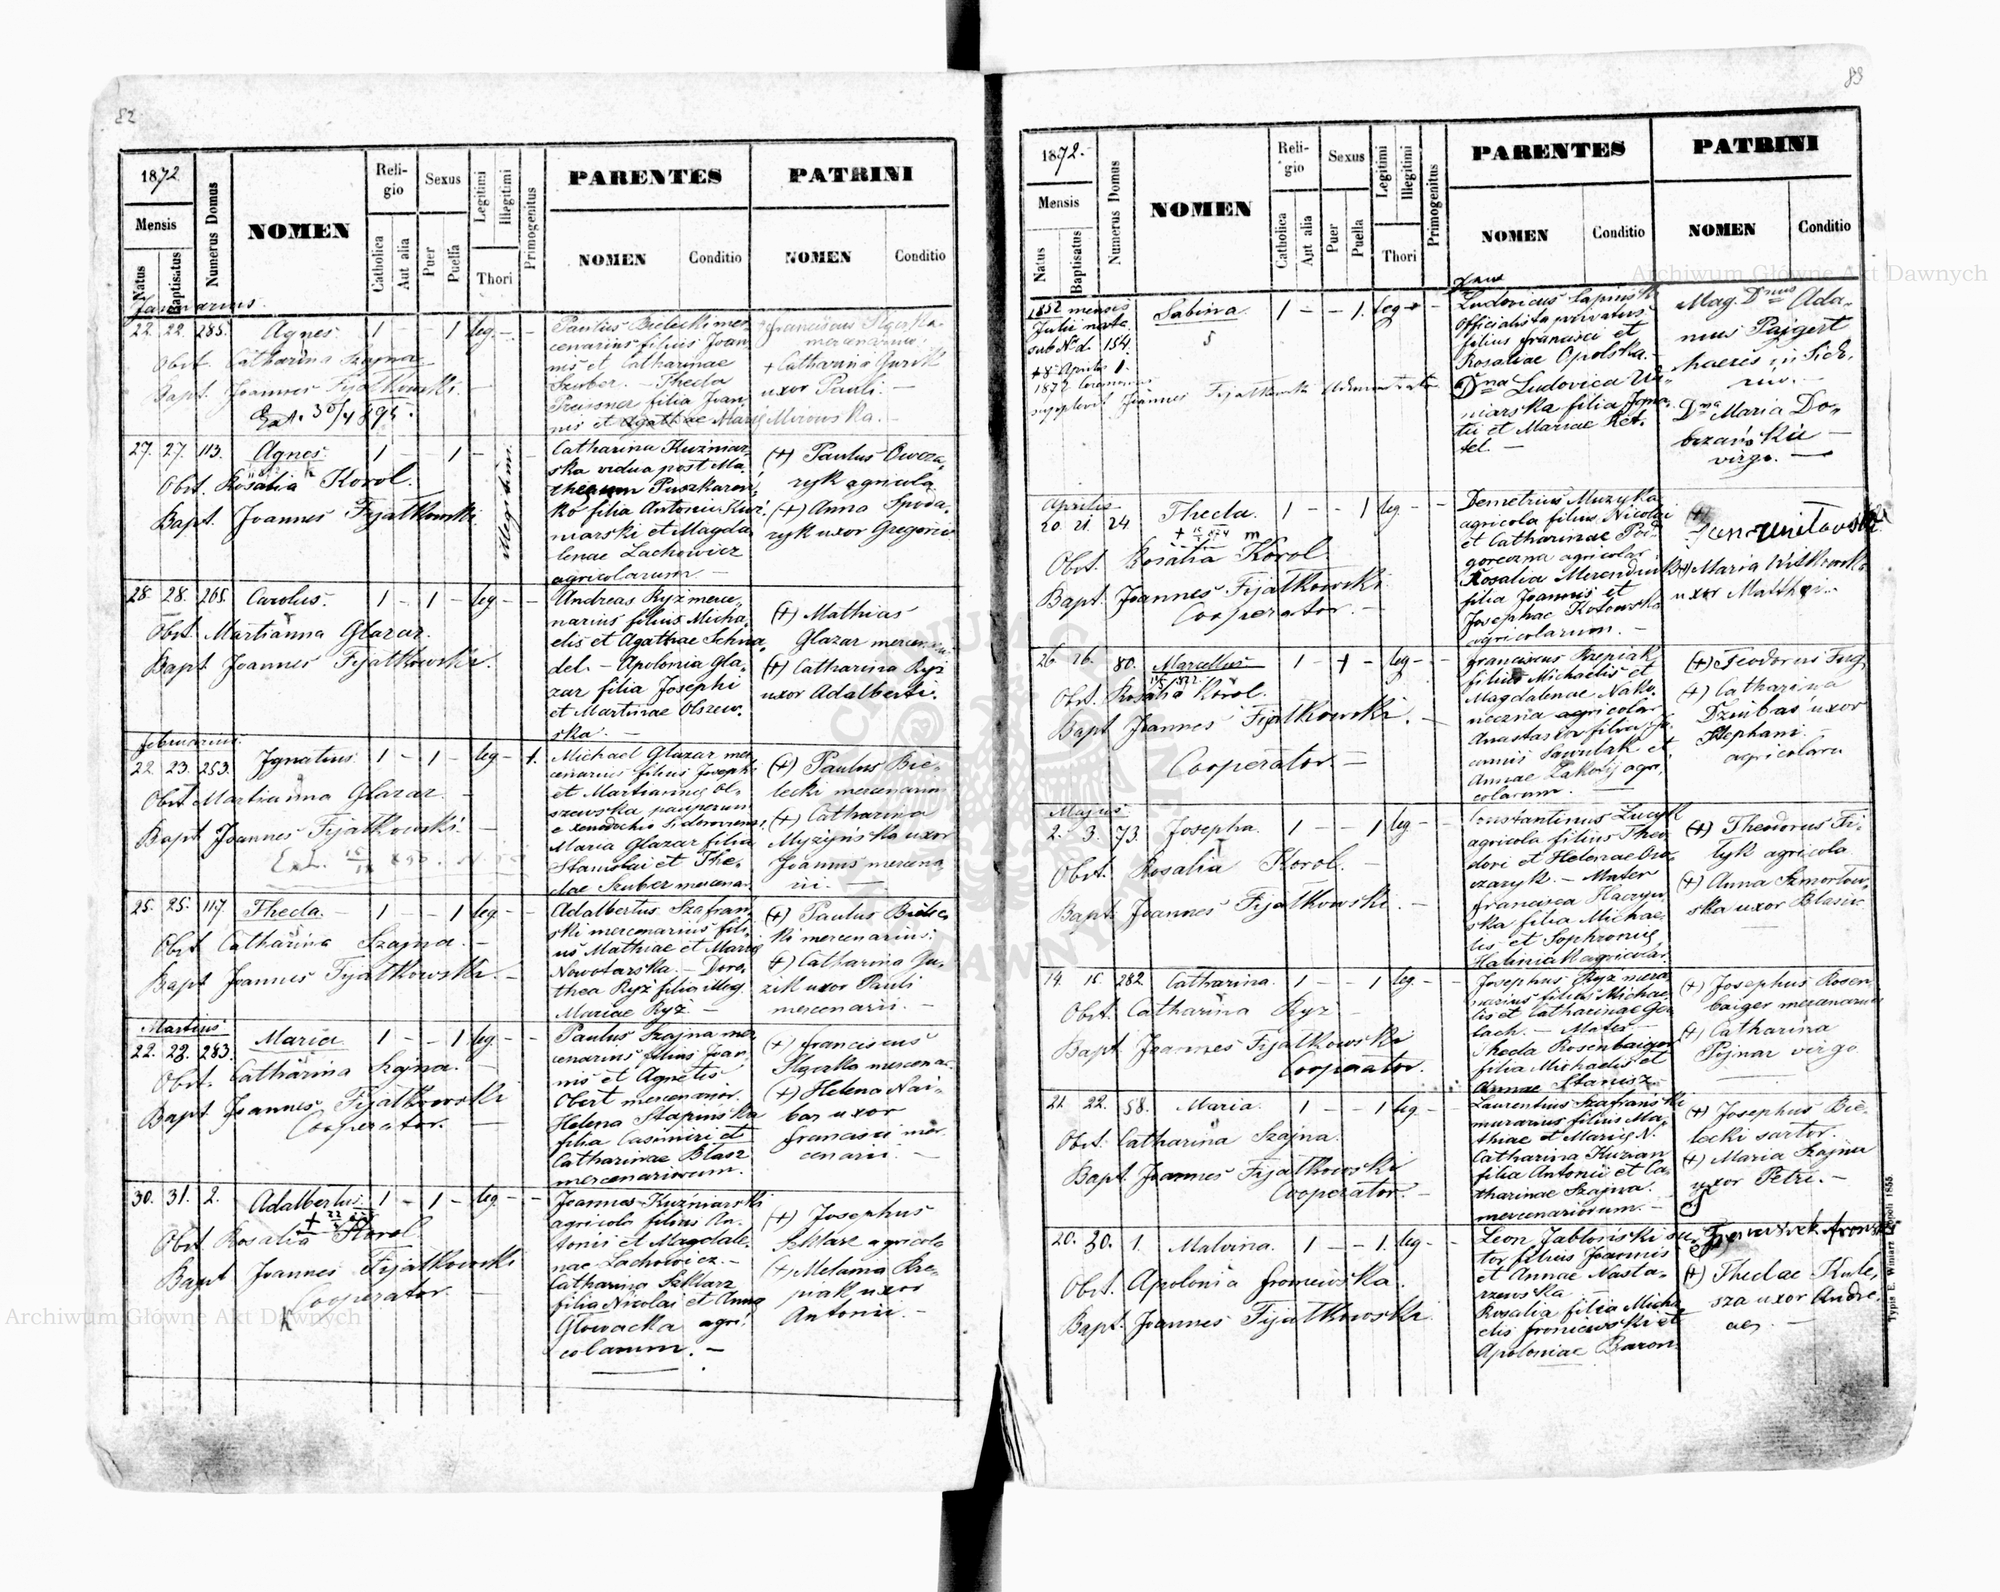 82
1872
Mensis
Natus
Baptisatus
Numerus Domus
NOMEN
Religio
Catholica
Aut alia
Sexus
Puer
Puella
Legitimi
Illegitimi
Thori
Primogenitus
PARENTES
NOMEN
Conditio
PATRINI
NOMEN
Conditio
Januarius.
22. 22. 285. Agnes. 1 - - 1 leg. - -
Obst. Catharina Szajna
Bapt. Joannes Fijatkowski. -
Paulus Bielecki mer,
cenarius filius Joan,
nis et Catharinae
Szuber. - Thecla
Preissner filia Joan,
nis et Agathae
Franciscus
mercenarius.
+ Catharina
uxor Pauli. -
27. 27. 113. Agnes. 1 - - 1 - illegitimi. -
Obst. Rosalia Korol.
Bapt. Joannes Fijatkowski
Catharina Kuzniar,
ska vidua post Ma,
theum Puszkaren,
ko filia Antonii Kuz,
niarski et Magda,
lenae Lachowicz
agricolarum -
(+) Paulus Owcza,
ryk agricola
(+) Anna
ryk uxor Gregorii
28. 28. 265. Carolus. 1 - 1 - leg - -
Obst. Martianna Glazar.
Bapt. Joannes Fijatkowski.
Andreas Ryz merce,
narius filius Micha,
elis et Agathae
del. - Apolonia Gla,
zar filia Josephi
et Martinae Olszew,
ska. -
(+) Mathias
Glazar
(+) Catharina Ryz
uxor Adalberti.
Februarius.
22. 23. 253. Ignatius 1 - 1 - leg - 1.
Obst Martianna Glazar. -
Bapt Joannes Fijatkowski. -
Michael Glazar mer,
cenarius filius Josephi
et Martiannae Ol,
szewska pauperum
e xenodochio
Maria Glazar filia
Stanislai et The,
clae Szuber mercenar.
(+) Paulus Bie,
lecki mercenarius
(+) Catharina
uxor
Joannis mercena,
rii. -
25. 25. 117. Thecla. - 1 - - 1 leg - -
Obst Catharina Szajna. -
Bapt Joannes Fijatkowski. -
Adalbertus Szafran,
ski mercenarius fili,
us Mathiae et Maria
Nowotarska. - Doro,
thea Ryz filia illeg.
Mariae Ryz. -
(+) Paulus Bielec,
ki mercenarius.
+) Catharina Gu,
zik uxor Pauli
mercenarii. -
Martius
22. 23. 283. Maria 1 - - 1 leg. - -
Obst. Catharina Szajna. -
Bapt Joannes Fijatkowski
Cooperator. -
Paulus Szajna mer,
cenarius filius Joan,
nis et Agnetis
Obert mercenarior.
Helena Stapinska
filia Casimiri et
Catharinae Blasz
mercenariorum.
(+) Franciscus
(+) Helena Nai,
bar uxor
Francisci mer,
cenarii. -
30. 31. 2. Adalbertus 1 - 1 - leg - -
Obst Rosalia Korol
Bapt Joannes Fijatkowski
Cooperator. -
Joannes Kuzniarski
agricola filius An,
tonii et Magdale,
nae Lachowicz. -
Catharina Szklarz
filia Nicolai et Anna
Glowacka agri,
colarum. -
(+) Josephus
Szklarz agricola
(+) Melania Rze,
piak uxor
Antonii. -
83
1872.
Mensis
Natus
Baptisatus
Numerus Domus
NOMEN
Religio
Catholica
Aut alia
Sexus
Puer
Puella
Legitimi
Illegitimi
Thori
Primogenitus
PARENTES
NOMEN
Conditio
PATRINI
NOMEN
Conditio
1852 mensis
Julii nata
sub Nd. 154.
Aprilis
1872
Sabina. 1 - - 1. leg - -
Joannes Fijatkowski Administrator
Ludovicus Lapinski
Officialista privatus
filius Francisci et
Rosaliae Opolska. -
Dna Ludovica
filia Igna,
tii et Mariae Ket,
tel. -
Mag. Dnus Ada,
mus Pajgert
haeres in Sido,
row. -
Dna Maria Do,
brzanska -
virgo. -
Aprilis
20. 21. 24 Thecla. 1 - - 1 leg - -
Obst. Rosalia Korol
Bapt. Joannes Fijatkowski.
Cooperator. -
Demetrius Muzyka
agricola filius Nicolai
et Catharinae Pod,
gorczna agricolar.
Rosalia
filia Joannis et
Josephae Kotowska
agricolarum. -
(+) Jan Witowski
(+) Maria Witkowska
uxor Matthei. -
26. 26. 80. Marcellus 1 - 1 - leg - -
Obst. Rosalia Korol.
Bapt Joannes Fijatkowski. -
Cooperator =
Franciscus Rzepiak
filius Michaelis et
Magdalenae Nako,
neczna agricolar
Anastasia filia Jo,
annis Sawulak et
Annae Zakorij agri,
colarum.
(+) Teodorus
(+) Catharina
Dziubas uxor
Stephani.
agricolara
Majus.
2. 3. 73. Josepha. 1 - - 1 leg - -
Obst. Rosalia Korol. -
Bapt. Joannes Fijatkowski. -
Constantinus Lucyk
agricola filius Theo,
dori et Helenae Ow,
czaryk. - Mater
Francisca
ska filia Michae,
lis et Sophronia
Haliniak agricolar.
(+) Theodorus Fi,
lyk agricola
(+) Anna Szmorlow,
ska uxor Blasii
14. 15. 282 Catharina. 1 - - 1 leg - -
Obst. Catharina Ryz -
Bapt. Joannes Fijatkowski
Cooperator.
Josephus Ryz merce,
narius filius Michae,
lis et Catharinae Ger,
lach. - Mater -
Thecla Rosenbaiger
filia Michaelis et
Annae Stanisz. -
(+) Josephus Rosen,
baiger mercenarius
(+) Catharina
Pojnar virgo.
21. 22. 58. Maria. 1 - - 1 leg - -
Obst. Catharina Szajna.
Bapt. Joannes Fijatkowski
Cooperator. -
Laurentius Szafranski
murarius filius Ma,
thiae et Mariae N.
Catharina Kuzian
filia Antonii et Ca,
tharinae Szajna.
mercenariorum. -
(+) Josephus Bie,
lecki sartor.
(+) Maria Szajna
uxor Petri. -
20. 30. 1. Malvina. 1 - - 1. leg - -
Obst. Apolonia Froniewska.
Bapt. Joannes Fijatkowski
Leon Jablonski su,
tor filius Joannis
et Annae Nasta,
rzewska -
Rosalia filia Micha,
elis Froniewski et
Apoloniae Baron.
(+) Theclae Kule,
sza uxor Andre,
ae. -
Typis E. Winiarz Leopoli 1855
Archiwum Główne Akt Dawnych
Archiwum Główne Akt Dawnych